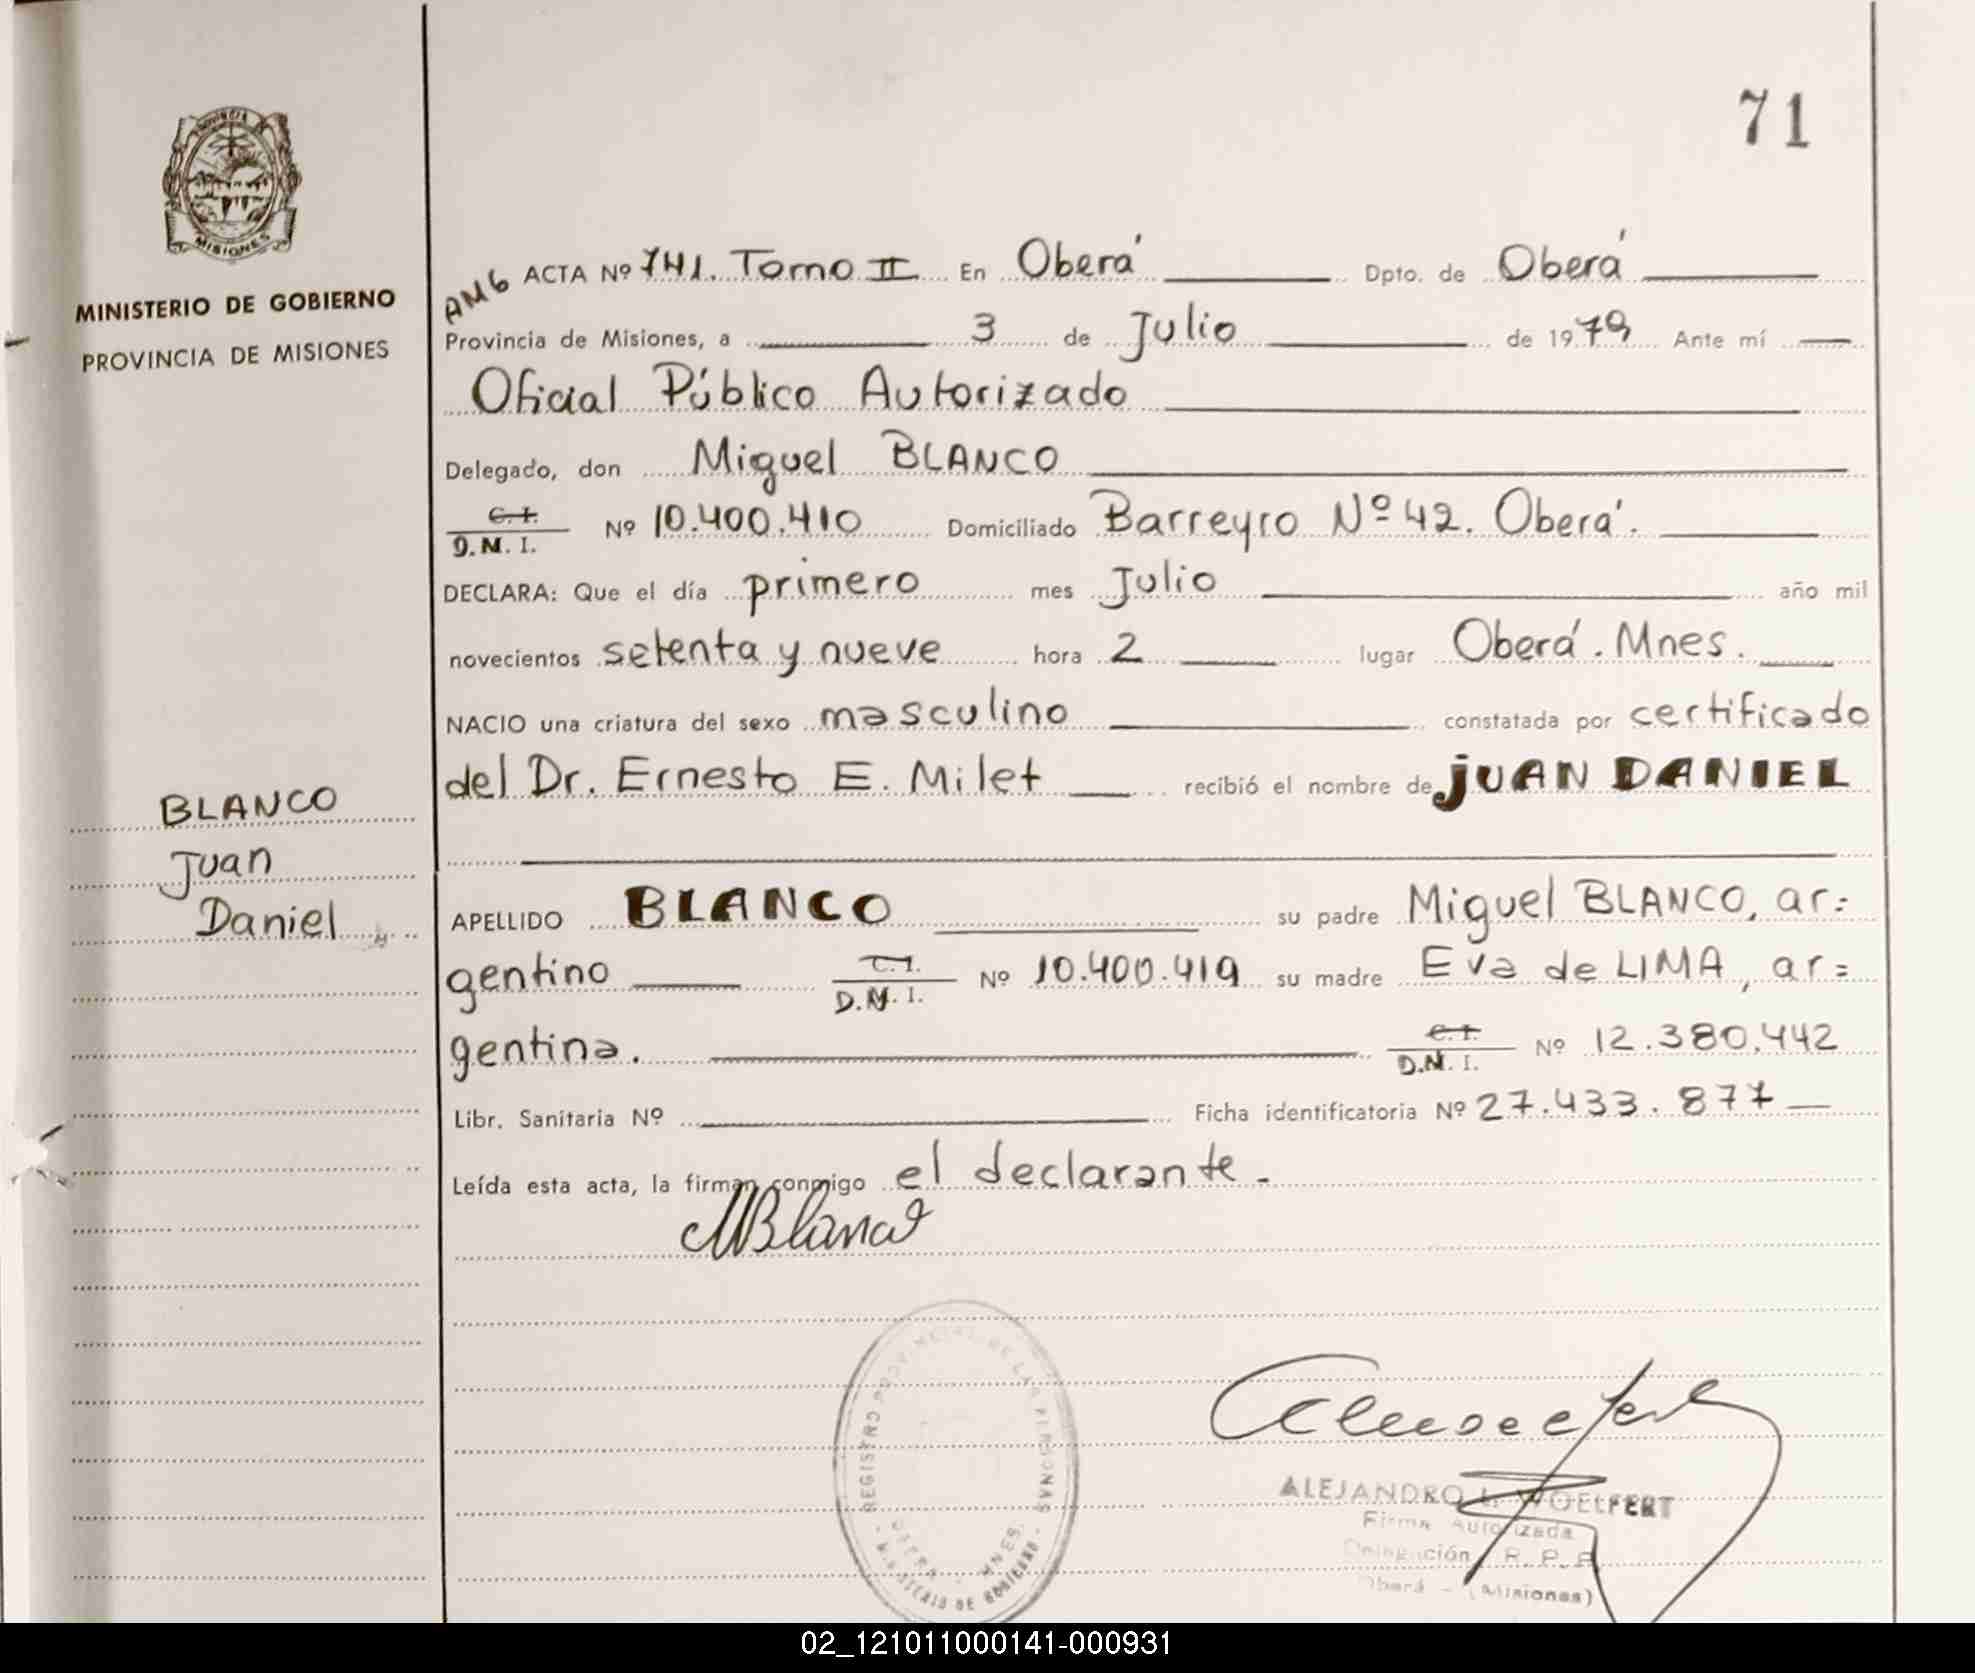 71
PROVINCIA DE
MISIONES
MINISTERIO DE GOBIERNO
PROVINCIA DE MISIONES
BLANCO
Juan
Daniel
AM6 ACTA Nº 741. Tomo II En Oberá Dpto. de Oberá
Provincia de Misiones, a 3 de Julio de 1979 Ante mí
Oficial Público Autorizado
Delegado, don Miguel BLANCO
C. I.
D.N. I. Nº 10.400.410 Domiciliado Barreyro Nº 42. Oberá.
DECLARA: Que el día primero mes Julio año mil
novecientos setenta y nueve hora 2 lugar Oberá. Mnes.
NACIO una criatura del sexo masculino constatada por certificado
del Dr. Ernesto E. Milet recibió el nombre de JUAN DANIEL
APELLIDO BLANCO su padre Miguel BLANCO, ar=
gentino C. I. D.N. I. Nº 10.400.419 su madre Eva de LIMA, ar=
gentina. C. I. D.N. I. Nº 12.380.442
Libr. Sanitaria Nº Ficha identificatoria Nº 27.433.877
Leída esta acta, la firman conmigo el declarante.-
MBlanco
REGISTRO PROVINCIAL DE LAS PERSONAS
OBERA - MNES.
- MINISTERIO DE GOBIERNO -
ALEJANDRO L. WOELFERT
Firma Autorizada
Delegación R. P. P.
Oberá - (Misiones)
02_121011000141-000931